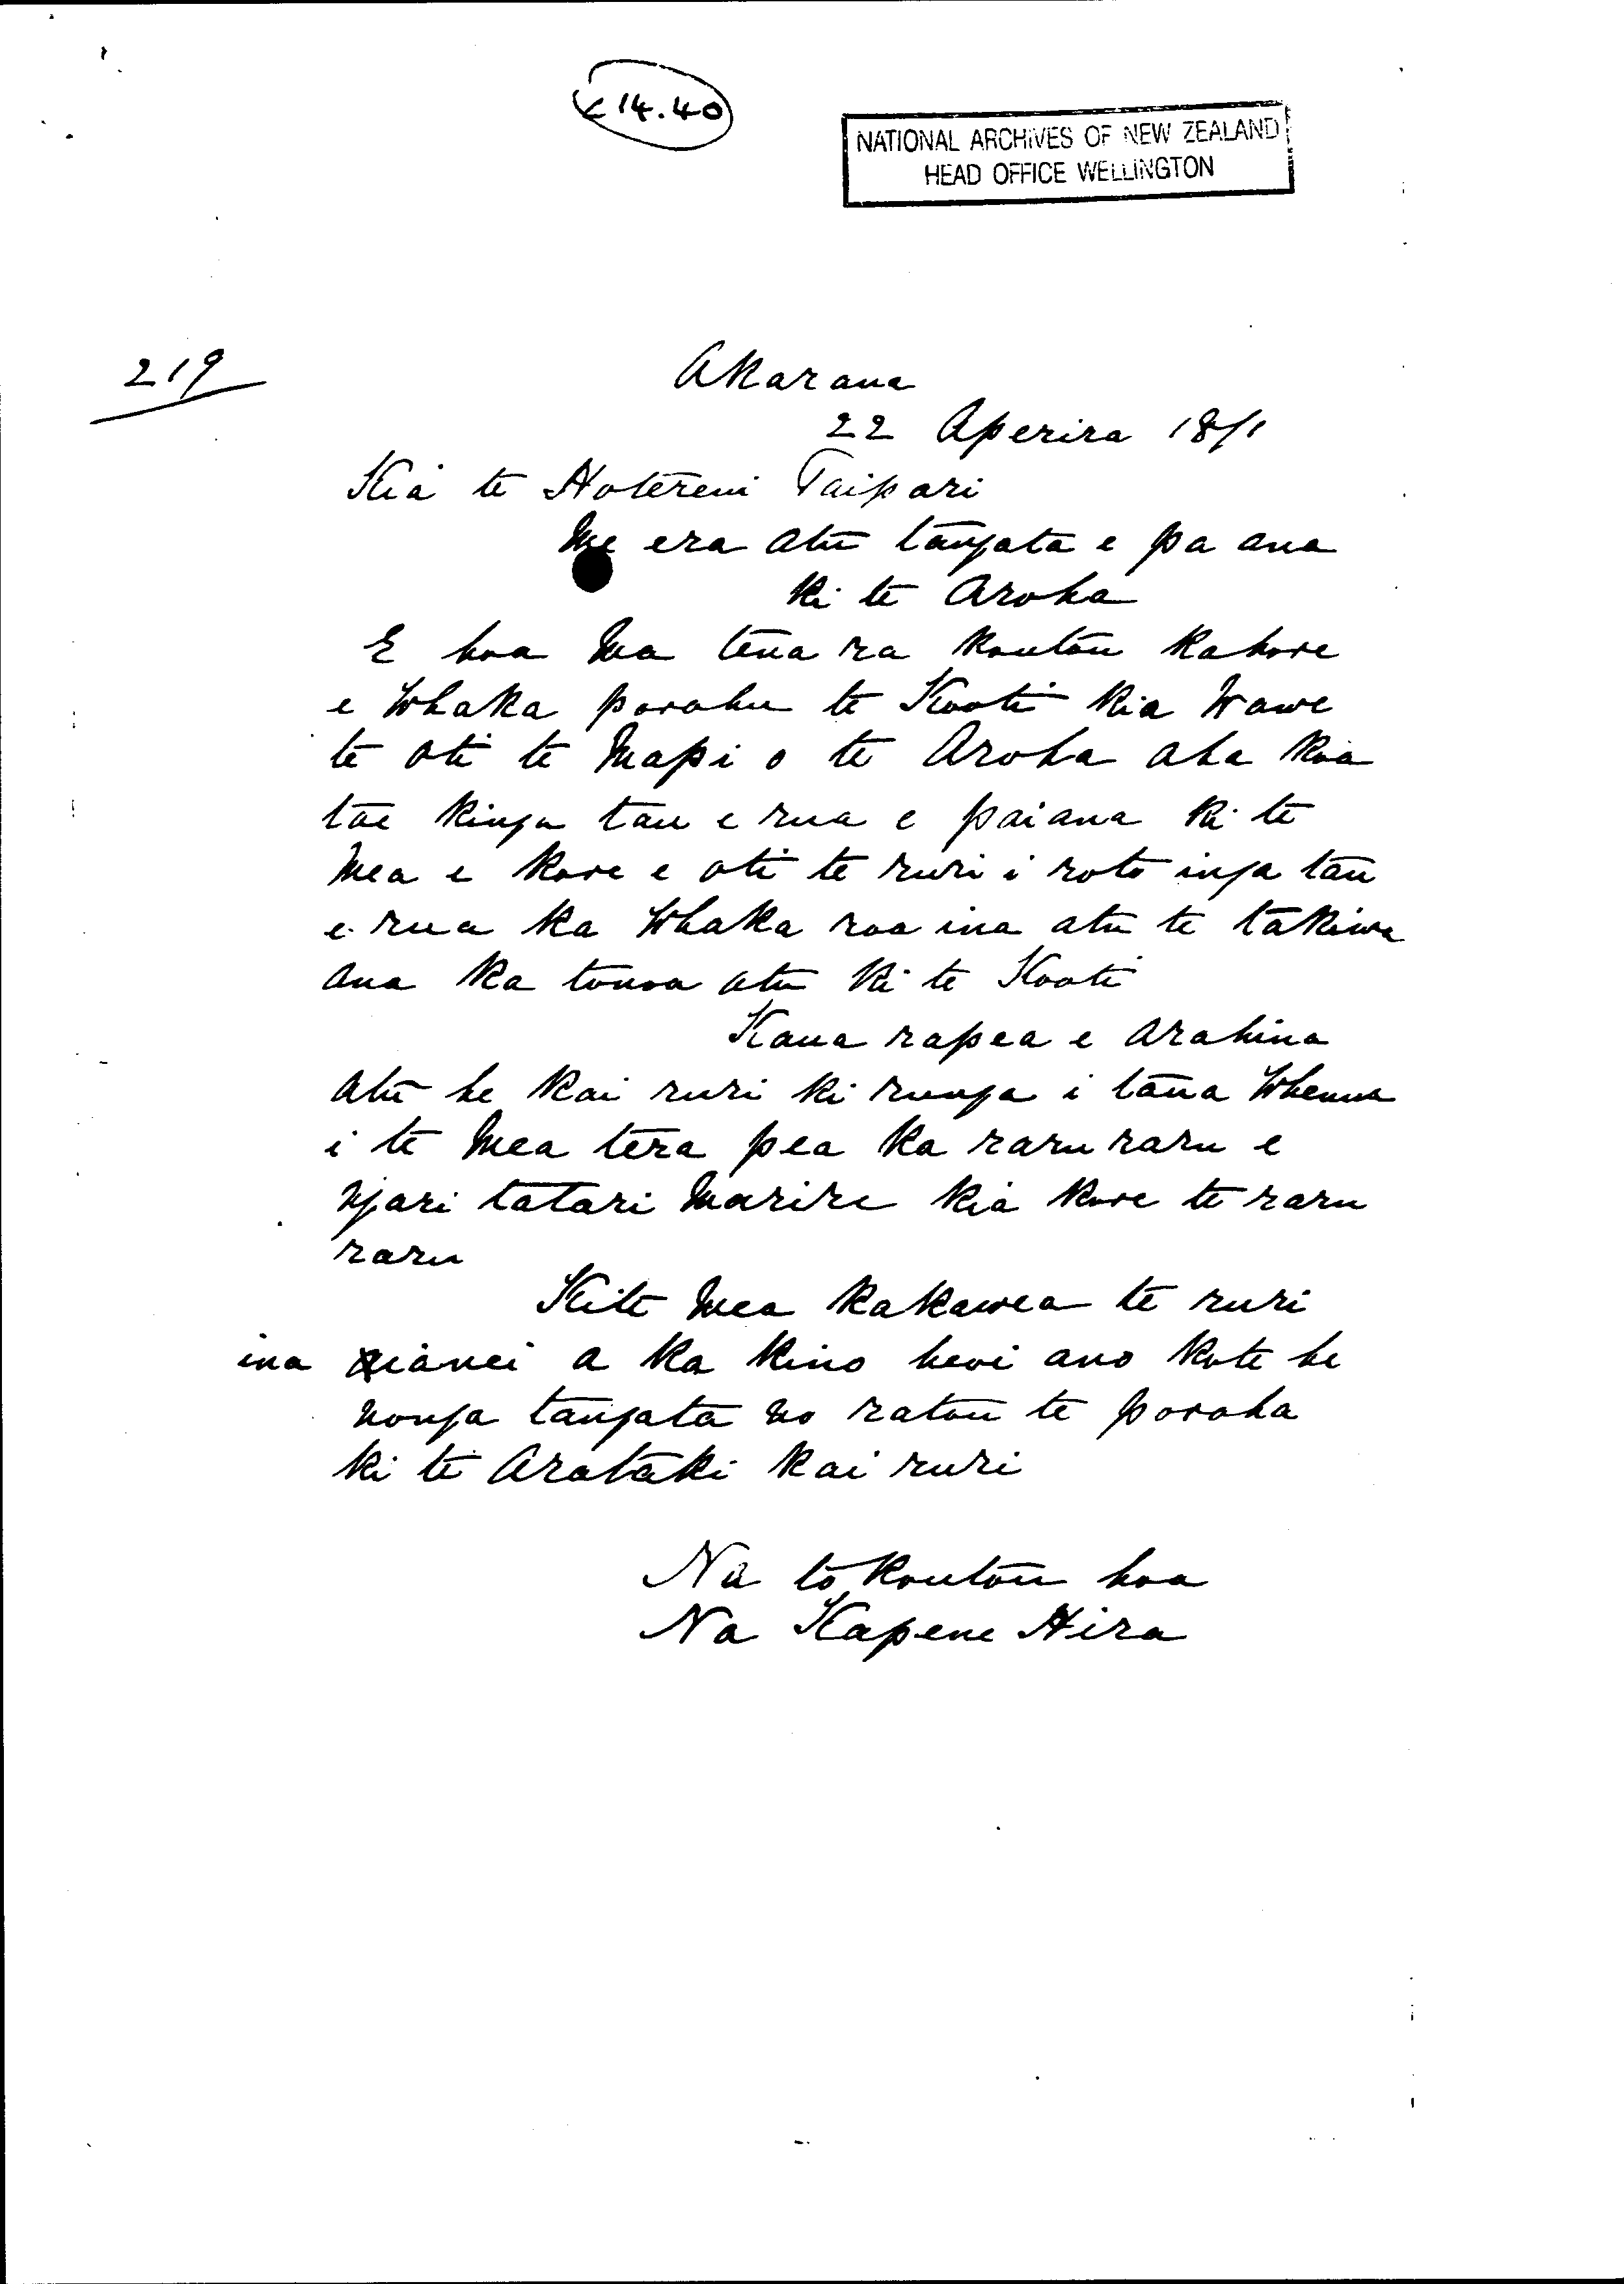 £14.40
NATIONAL ARCHIVES OF NEW ZEALAND
HEAD OFFICE WELLINGTON
219
Akarana
22 Aperira 1871
Kia te Hotereni Taipari
Me era atu tangata e pa ana
ki te Aroha
E hoa ma tena ra koutou kahore
e whaka porohu te Kooti kia wawe
te oti te mapi o te Aroha aha koa
tae kinga tau e rua e pai ana ki te
mea e kore e oti te ruri i roto inga tau
e rua ka whaka roa ina atu te takiwa
ana ka tonoa atu ki te Kooti
Kaua rapea e arahina
atu he kai ruri ki runga i taua whenua
i te mea tera pea ka raru raru e
ngari tatari marire kia kore te raru
raru
Kite mea kakawea te ruri
ina ianei a ka kino heoi ano kote he
nonga tangata no ratou te poroha
ki te arataki kai ruri
Na to koutou hoa
Na Kapene Hira